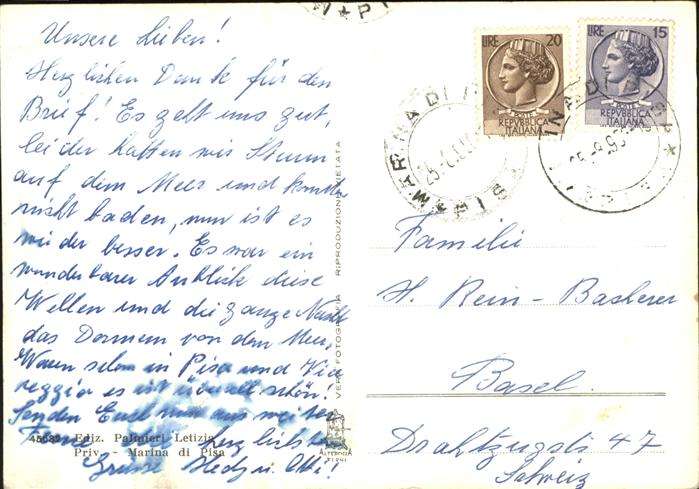 Unsere Lieben!
Herzlichen Dank für den
Brief! Es geht uns gut,
leider hatten wir Sturm
auf dem Meer und konnten
nicht baden, nun ist es
wieder besser. Es war ein
wunderbarer Anblick diese
Wellen und die ganze Nacht
das Donnern von dem Meer,
Waren schon in Pisa und Viareggio
es ist überall schön!
Senden Euch nun aus weiter
Ferne herzlichste
Grüsse Hedy u. Otti!
45639 Ediz. Palmieri Letizia
Priv - Marina di Pisa
VERA FOTOGRAFIA RIPRODUZIONE VIETATA
LIRE 20
POSTE
REPVBBLICA
ITALIANA
LIRE 15
POSTE
REPVBBLICA
ITALIANA
MARINA DI PISA
Familie
H. Rein - Basherer
Basel.
Drahtzugstr 47
Schweiz